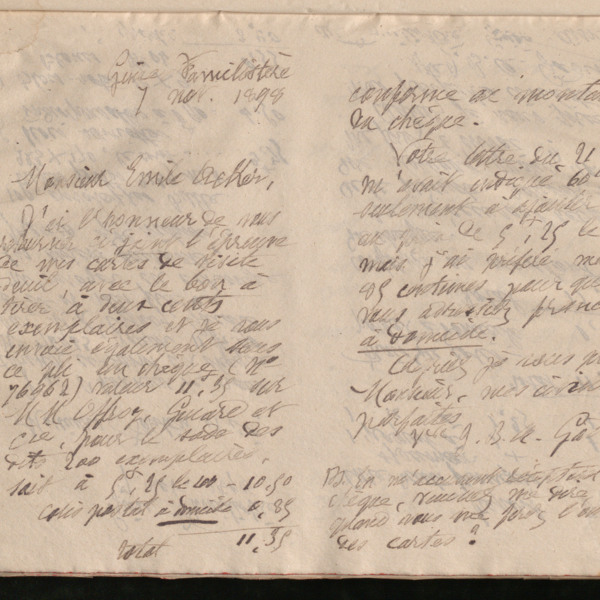 Guise Familistère
7 nov. 1898
Monsieur Emile
J'ai l'honneur de vous
retourner ci-joint l'épreuve
de mes cartes de visite
deuil, avec le bon à
tirer à deux cents
exemplaires et je vous
envoie également sous
ce pli un chèque (No
76962) valeur 11.35 sur
MM Offroy, Guiard et
Cie, pour le solde des
dits 200 exemplaires,
soit à 5,25 le 100 - 10,50
colis postal à domicile 0,85
total 11,35
conforme au montant
du chèque.
Votre lettre du 21
m'avait indiqué 60
seulement à ajouter
au prix de 5,25 le
mais j'ai préféré
85 centimes pour que
vous adressiez franco
à domicile.
je vous
Monsieur, mes
parfaites
J. B. A.
En m'accusant
chèque, veuillez me
quand vous me ferez
des cartes?